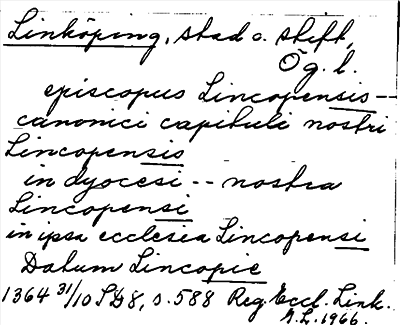 Linköping, stad o. stift,
Ög. l.
episcopus Lincopensis --
canonici capituli nostri
Lincopensis
in dyocesi -- nostra
Lincopensi
in ipsa ecclesia Lincopensi
Datum Lincopie
1364 31/10 SD8, s. 588 Reg. Eccl. Link.
G.L. 1966.